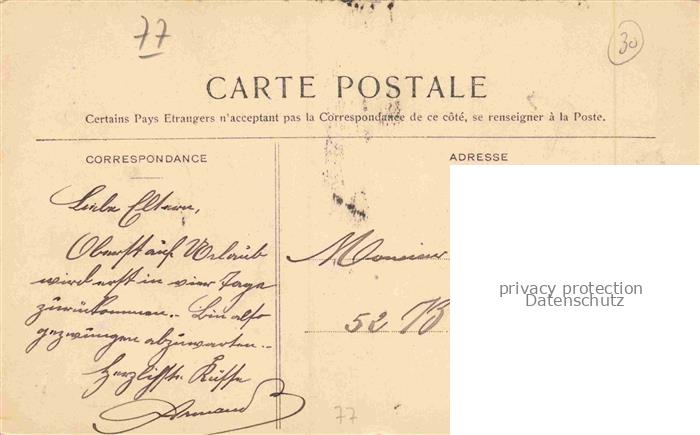 77
30
CARTE POSTALE
Certains Pays Etrangers n'acceptent pas la Correspondance de ce côté, se renseigner à la Poste.
CORRESPONDANCE
ADRESSE
Liebe Eltern,
Oberst auf Urlaub
wird erst in vier Tage
zurückommen.. Bin also
gezwungen abzuwarten..
Herzlichste Küsse
Armand
Monsieur
52
privacy protection
Datenschutz
77